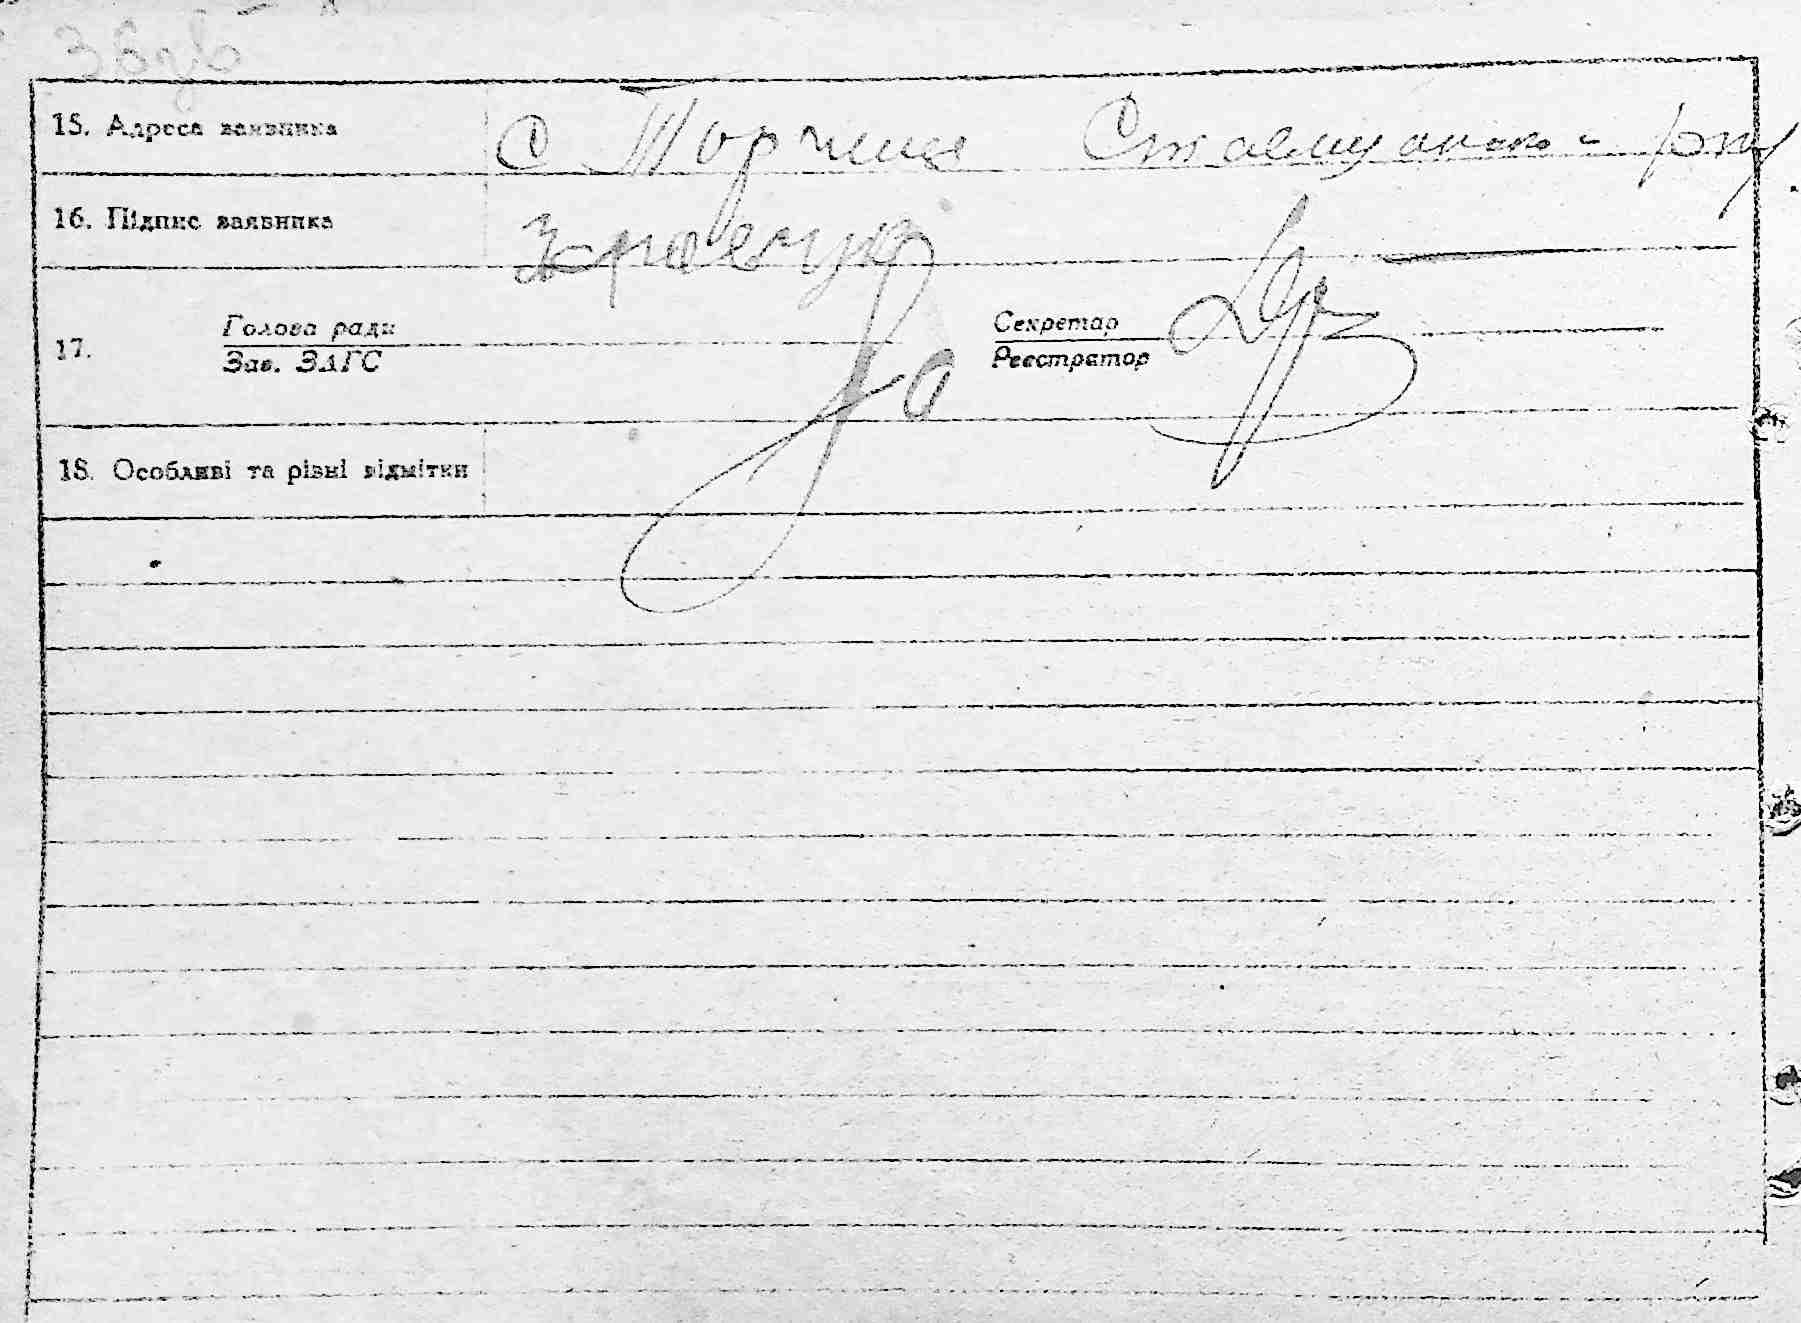 15. Адреса заявника с Торчиця Ставищанського р-ну
16. Підпис заявника Кравчук
17. Голова ради Секретар
Зав. ЗАГС Реєстратор
18. Особливі та різні відмітки